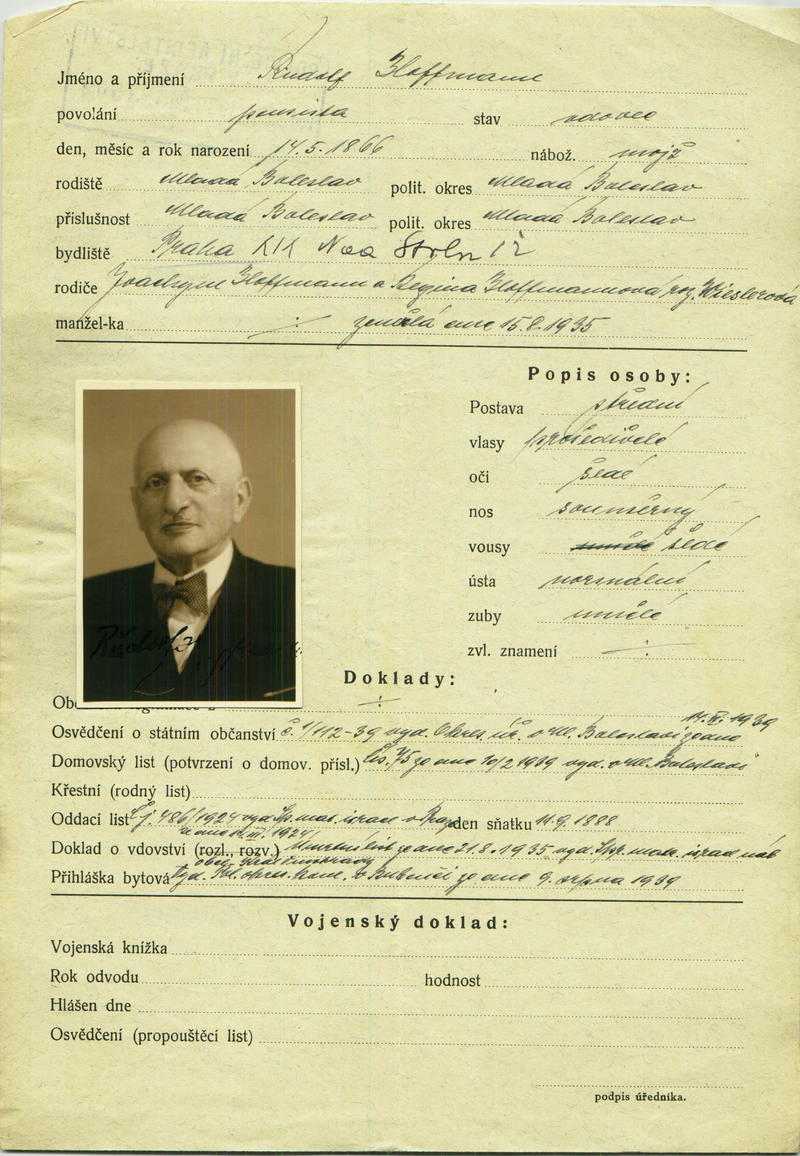 Jméno a příjmení Rudolf Hoffmann
povolání pensista stav vdovec
den, měsíc a rok narození 14. 5. 1866 nábož. mojž
rodiště Mladá Boleslav polit. okres Mladá Boleslav
příslušnost Mladá Boleslav polit. okres Mladá Boleslav
bydliště Praha XIX Nad Štolu 12
rodiče Joachym Hoffmann a Regina Hoffmannová roz. Wieslerová
manžel-ka zemřelá dne 15.8.1935
Popis osoby:
Postava střední
vlasy prošedivělé
oči šedé
nos souměrný
vousy šedé
ústa normální
zuby umělé
zvl. znamení ÷
Doklady:
Ob ÷
Osvědčení o státním občanství č. 1/112-39 vyd. Okres. úř. v Ml. Boleslavi ze dne 14. III. 1939
Domovský list (potvrzení o domov. přísl.) čís. 75 ze dne 10/2 1939 vyd. v Ml. Boleslavi
Křestní (rodný list)
Oddací list Č.j. 486/1924 vyd. Sp. mat. israe v Praze den sňatku 11.9.1888
z dne 10. III. 1924
Doklad o vdovství (rozl., rozv.) Úmrtní list ze dne 21.8.1935 vyd. Spr. matr. israel náb
obec
Přihláška bytová vyd. Pol. okres. kom. v Bubenči ze dne 9. srpna 1939
Vojenský doklad:
Vojenská knížka
Rok odvodu hodnost
Hlášen dne
Osvědčení (propouštěcí list)
podpis úředníka.